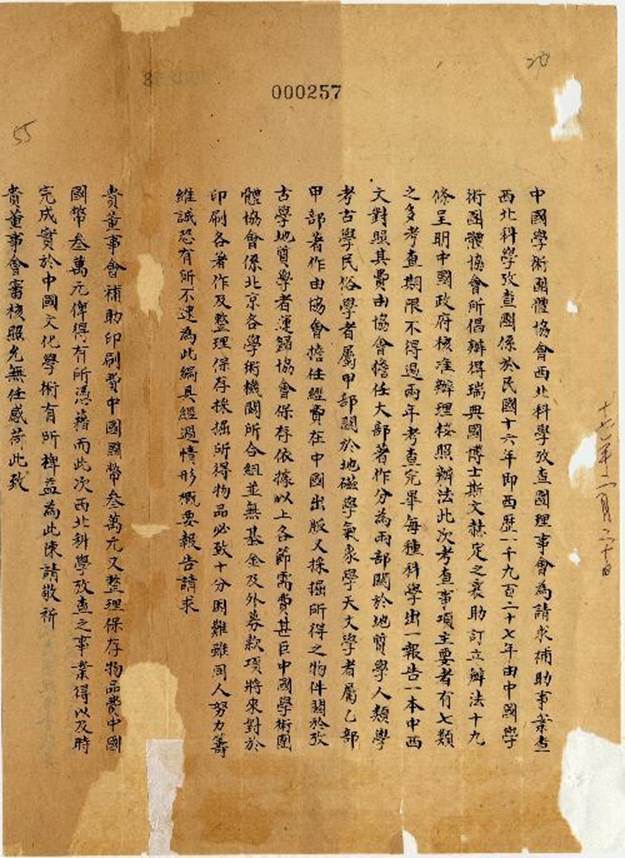 000257
28
十七年十二月二十日
中國學術團體協會西北科學攷查團理事會為請求補助事業查
西北科學攷查團係於民國十六年即西歷一千九百二十七年由中國學
術團體協會所倡辦得瑞典國博士斯文赫定之襄助訂立辦法十九
條呈明中國政府核准辦理按照辦法此次考查事項主要者有七類
之多考查期限不得過兩年考查完畢每種科學出一報告一本中西
文對照其費由協會擔任大部著作分為兩部關於地質學人類學
考古學民俗學者屬甲部關於地磁學氣象學天文學者屬乙部
甲部著作由協會擔任經費在中國出版又採掘所得之物件關於攷
古學地質學者運歸協會保存依據以上各節需費甚巨中國學術團
體協會係北京各學術機關所合組並無基金及外募款項將來對於
印刷各著作及整理保存採掘所得物品必致十分困難雖同人努力籌
維誠恐有所不逮為此縷具經過情形概要報告請求
貴董事會補助印刷費中國國幣叁萬元又整理保存物品費中國
國幣叁萬元俾得有所憑藉而此次西北科學攷查之事業得以及時
完成實於中國文化學術有所裨益為此陳請敬祈
貴董事會審核照允無任感荷此致
55